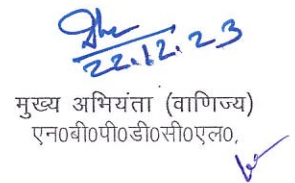 22.12.23
मुख्य अभियंता (वाणिज्य)
एन0बी0पी0डी0सी0एल0,